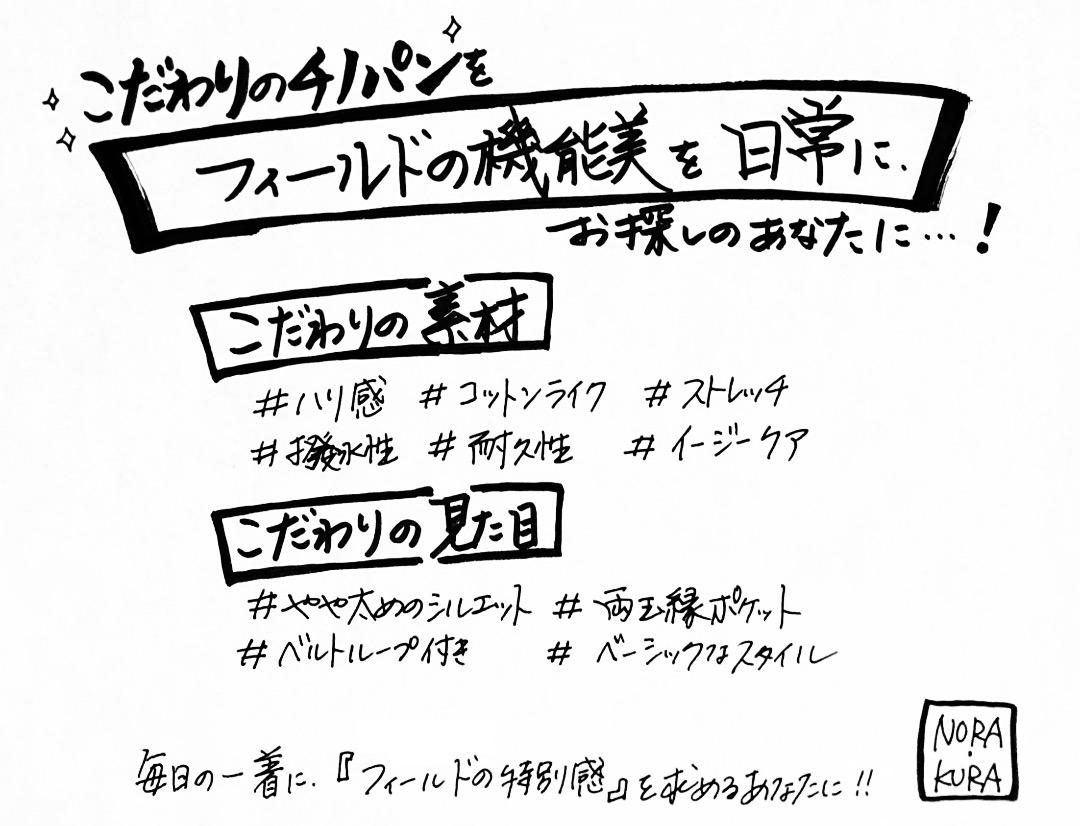 こだわりのチノパンを
フィールドの機能美を日常に.
お探しのあなたに…！
こだわりの素材
#ハリ感 #コットンライク #ストレッチ
#撥水性 #耐久性 #イージーケア
こだわりの見た目
#やや太めのシルエット #両玉縁ポケット
#ベルトループ付き #ベーシックなスタイル
毎日の一着に.『フィールドの特別感』を求めるあなたに!!
NORA・
KURA